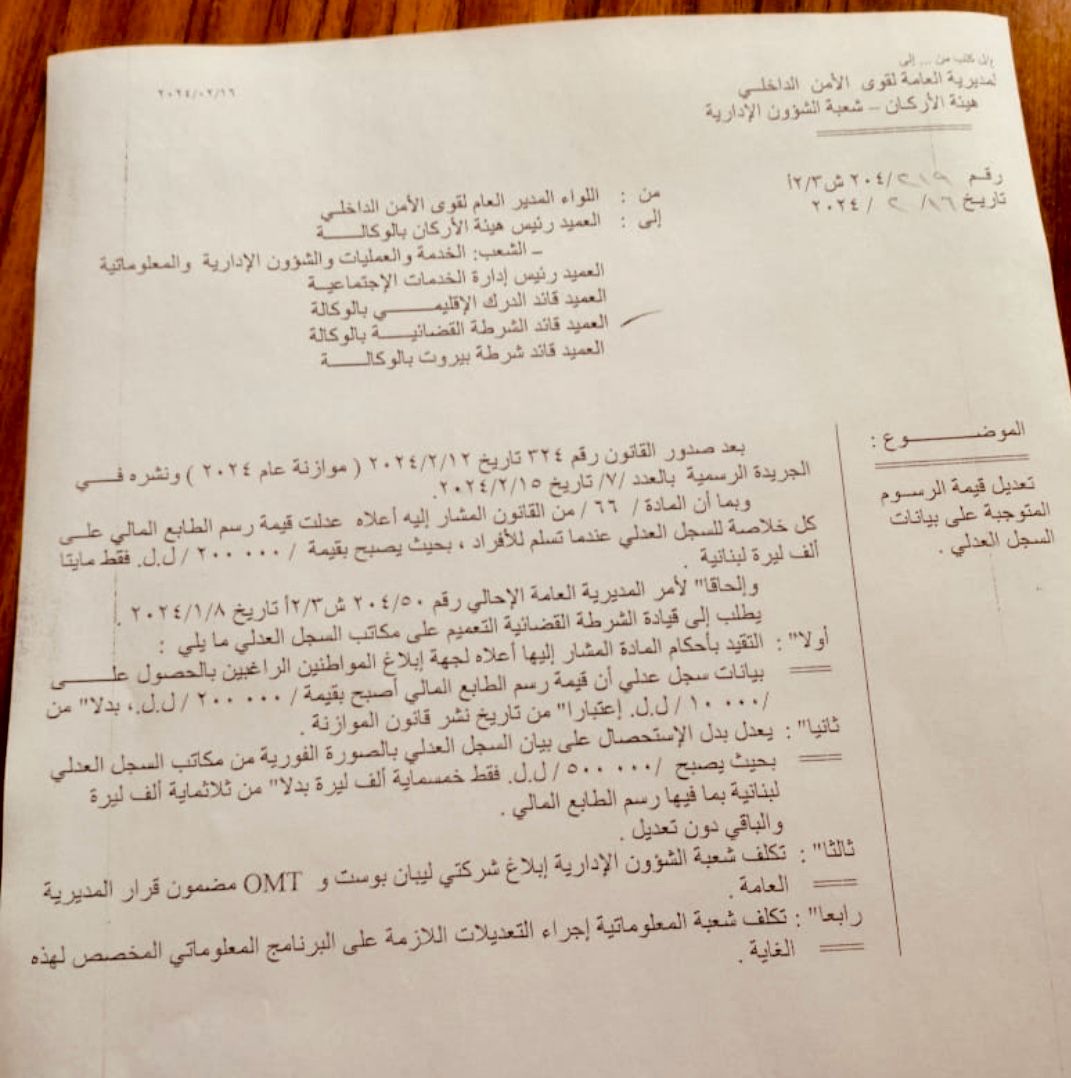 وان كتب من ... إلى
لمديرية العامة لقوى الأمن الداخلـــي
هيئة الأركـان – شعبة الشؤون الإدارية
٢٠٢٤/٠٢/١٦
رقـم ٢٠٤/٢١٩ ش٢/٣أ
تاريخ ١٦/ ٢ / ٢٠٢٤
من : اللواء المدير العام لقوى الأمن الداخلي
إلى : العميد رئيس هيئة الأركان بالوكالـــــة
ـ الشعب: الخدمة والعمليات والشؤون الإدارية والمعلوماتية
العميد رئيس إدارة الخدمات الإجتماعيـة
العميد قائد الدرك الإقليمـــــي بالوكالة
العميد قائد الشرطة القضائيـــــة بالوكالة
العميد قائد شرطة بيروت بالوكالـــــة
الموضـــــــوع :
تعديل قيمة الرسـوم
المتوجبة على بيانات
السجل العدلي .
بعد صدور القانون رقم ٣٢٤ تاريخ ٢٠٢٤/٢/١٢ ( موازنة عام ٢٠٢٤ ) ونشره فـــي
الجريدة الرسمية بالعدد /٧/ تاريخ ٢٠٢٤/٢/١٥.
وبما أن المادة / ٦٦ / من القانون المشار إليه أعلاه عدلت قيمة رسم الطابع المالي علـــى
كل خلاصة للسجل العدلي عندما تسلم للأفراد ، بحيث يصبح بقيمة / ٢٠٠ ٠٠٠ / ل.ل. فقط مايتا
ألف ليرة لبنانية .
وإلحاقا" لأمر المديرية العامة الإحالي رقم ٢٠٤/٥٠ ش٢/٣أ تاريخ ٢٠٢٤/١/٨ .
يطلب إلى قيادة الشرطة القضائية التعميم على مكاتب السجل العدلي ما يلي :
أولا" : التقيد بأحكام المادة المشار إليها أعلاه لجهة إبلاغ المواطنين الراغبين بالحصول علـــــى
بيانات سجل عدلي أن قيمة رسم الطابع المالي أصبح بقيمة / ٢٠٠ ٠٠٠ / ل.ل.، بدلا" من
/١٠ ٠٠٠ / ل.ل. إعتبارا" من تاريخ نشر قانون الموازنة .
ثانيا" : يعدل بدل الإستحصال على بيان السجل العدلي بالصورة الفورية من مكاتب السجل العدلي
بحيث يصبح /٥٠٠ ٠٠٠ / ل.ل. فقط خمسماية ألف ليرة بدلا" من ثلاثماية ألف ليرة
لبنانية بما فيها رسم الطابع المالي .
والباقي دون تعديل .
ثالثا" : تكلف شعبة الشؤون الإدارية إبلاغ شركتي ليبان بوست و OMT مضمون قرار المديرية
العامة .
رابعا" : تكلف شعبة المعلوماتية إجراء التعديلات اللازمة على البرنامج المعلوماتي المخصص لهذه
الغاية .